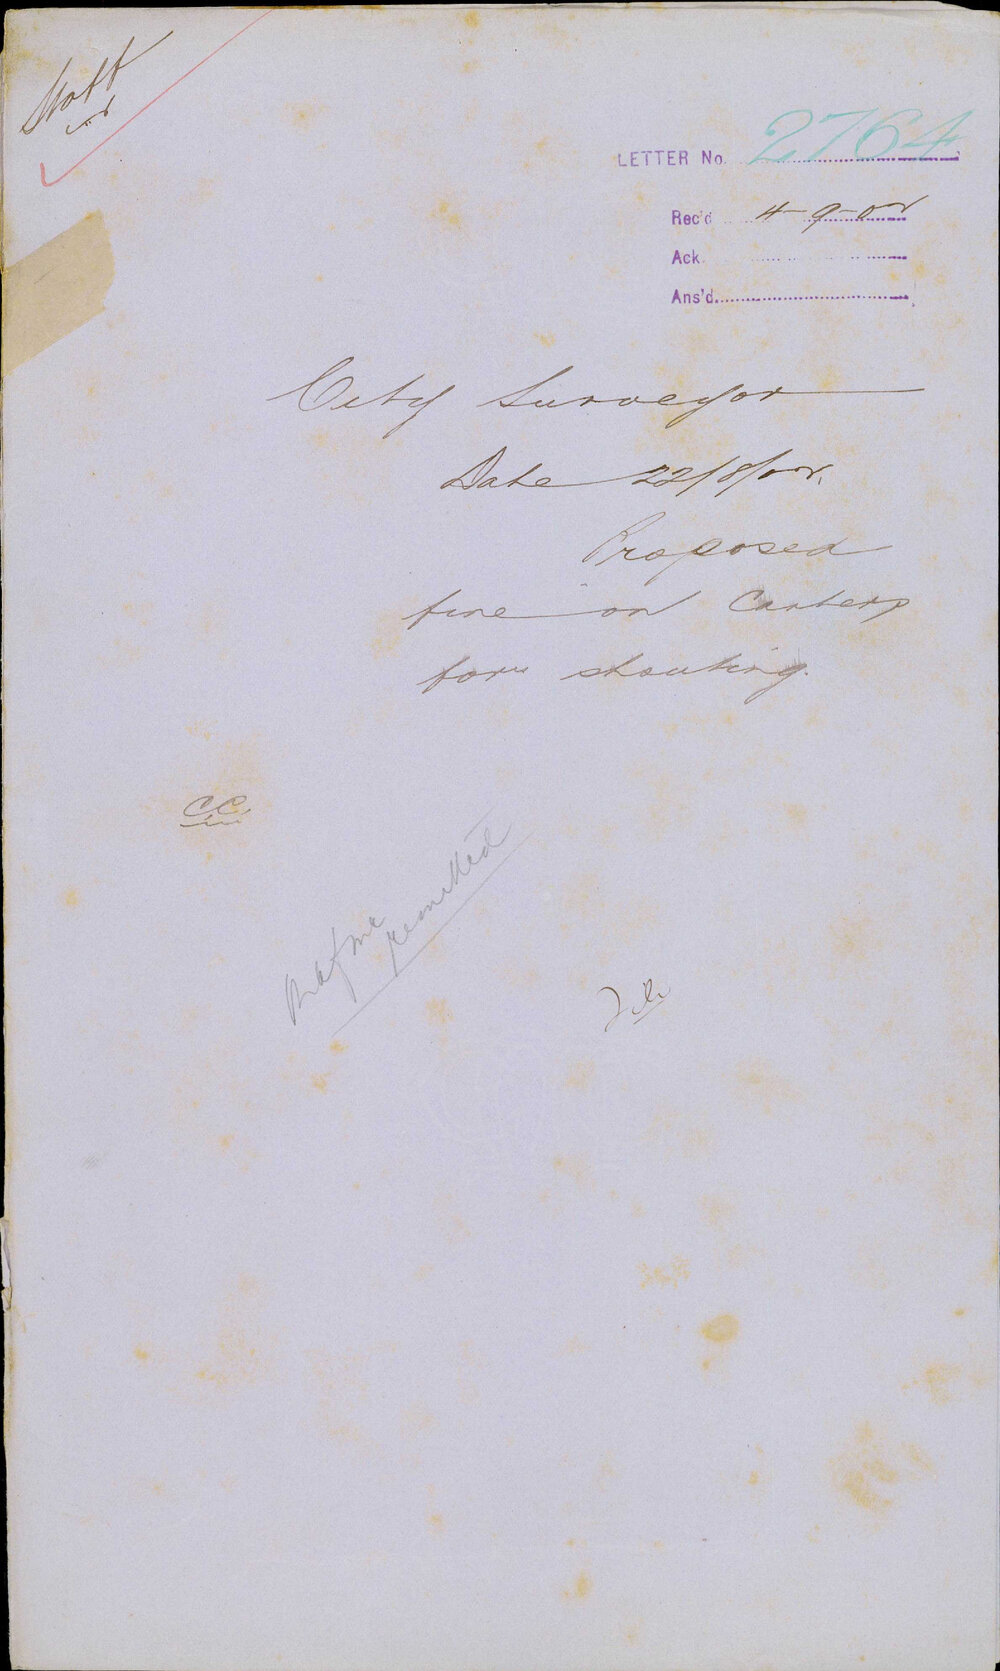 Staff
LETTER No. 2764
Rec'd 4-9-02
Ack.
Ans'd.
City Surveyor
Date 22/8/02.
Proposed
fine on Carters
for shouting.
CC
remitted
File